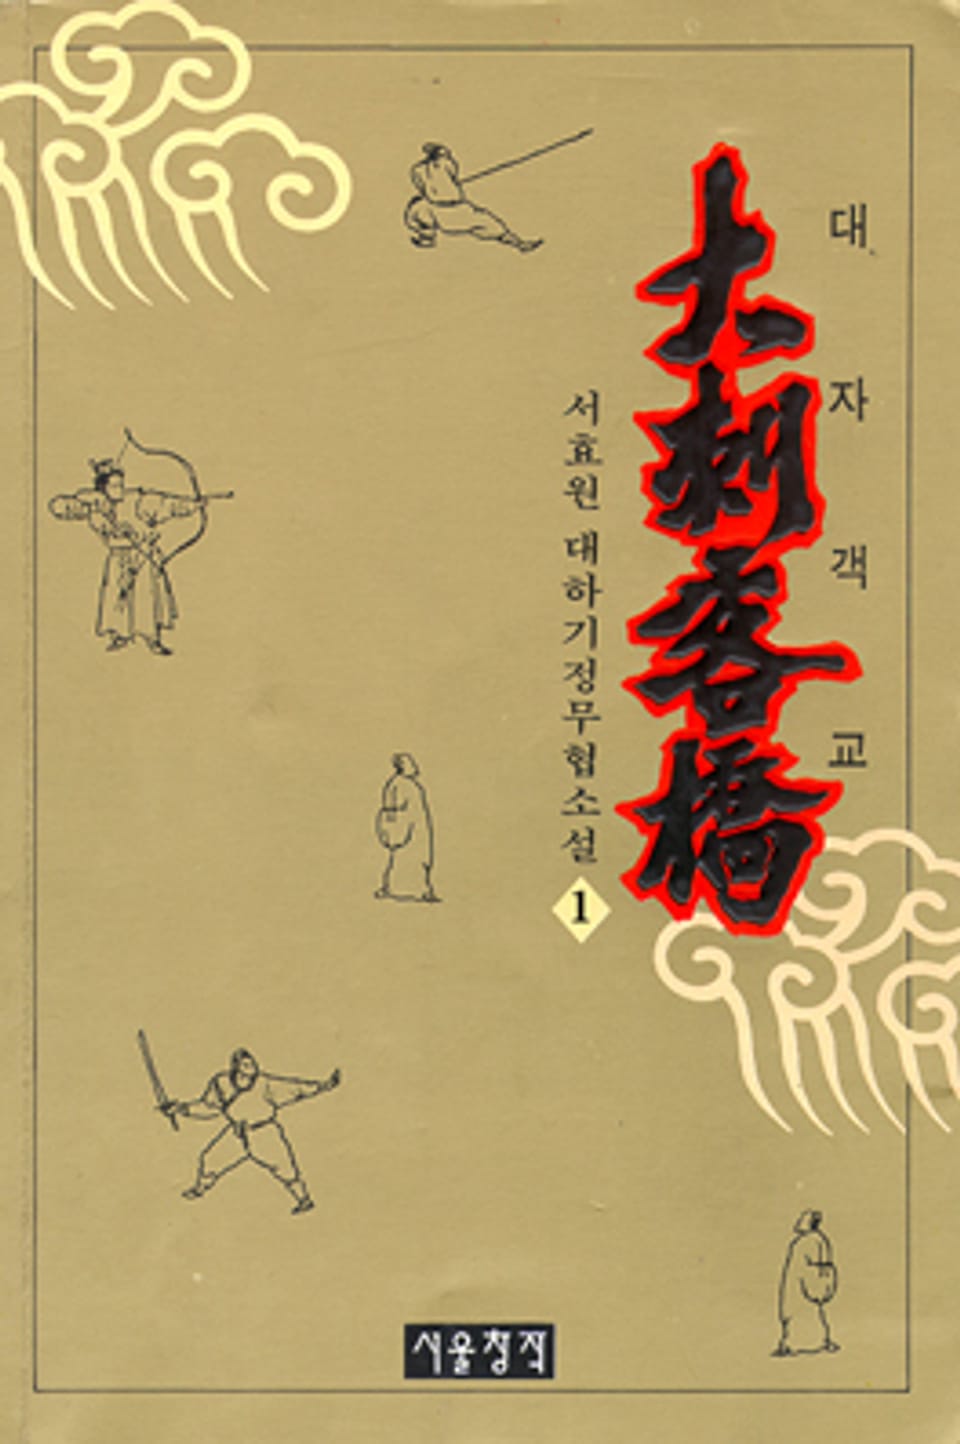 대자객교
大刺客橋
서효원 대하기정무협소설
1
서울창작